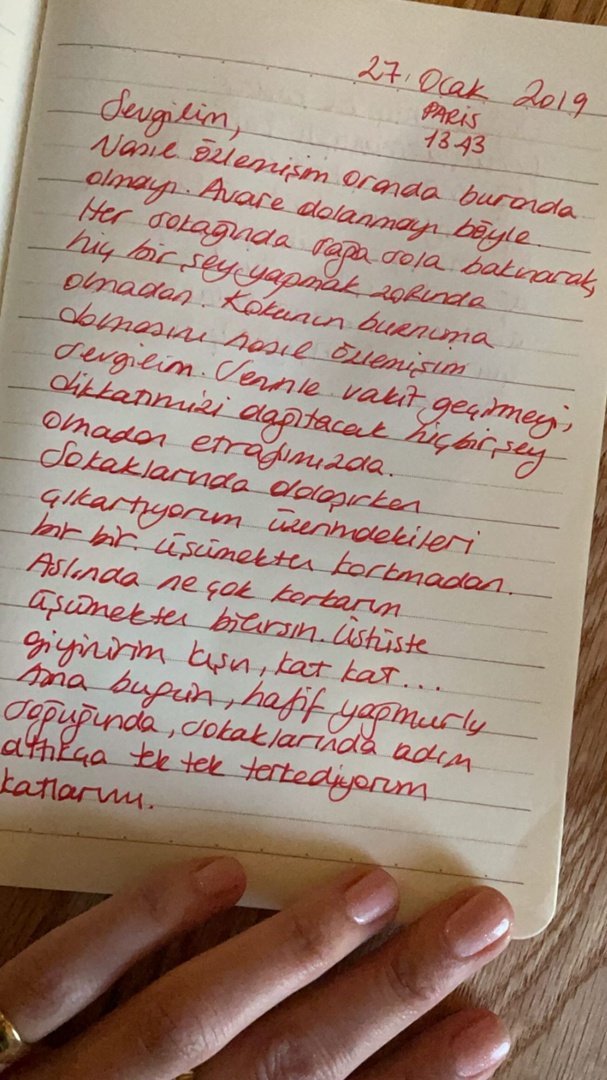 27. Ocak 2019
PARIS
13.43
Sevgilim,
Nasıl özlemişim oranda buranda
olmayı. Avare dolanmayı böyle.
Her sokağında sağa sola bakınarak,
hiç bir şey yapmak zorunda
olmadan. Kokunun burnuma
dolmasını nasıl özlemişim
sevgilim. Senle vakit geçirmeyi,
dikkatimizi dağıtacak hiçbir şey
omadan etrafımızda.
Sokaklarında dolaşırken
çıkartıyorum üzerimdekileri
bir bir. Üşümekten korkmadan.
Aslında ne çok korkarım
üşümekten bilirsin. Üstüste
giyinirim kışın, kat kat...
Ama bugün, hafif yağmurlu
soğuğunda, sokaklarında adım
attıkça tek tek terkediyorum
katlarımı.